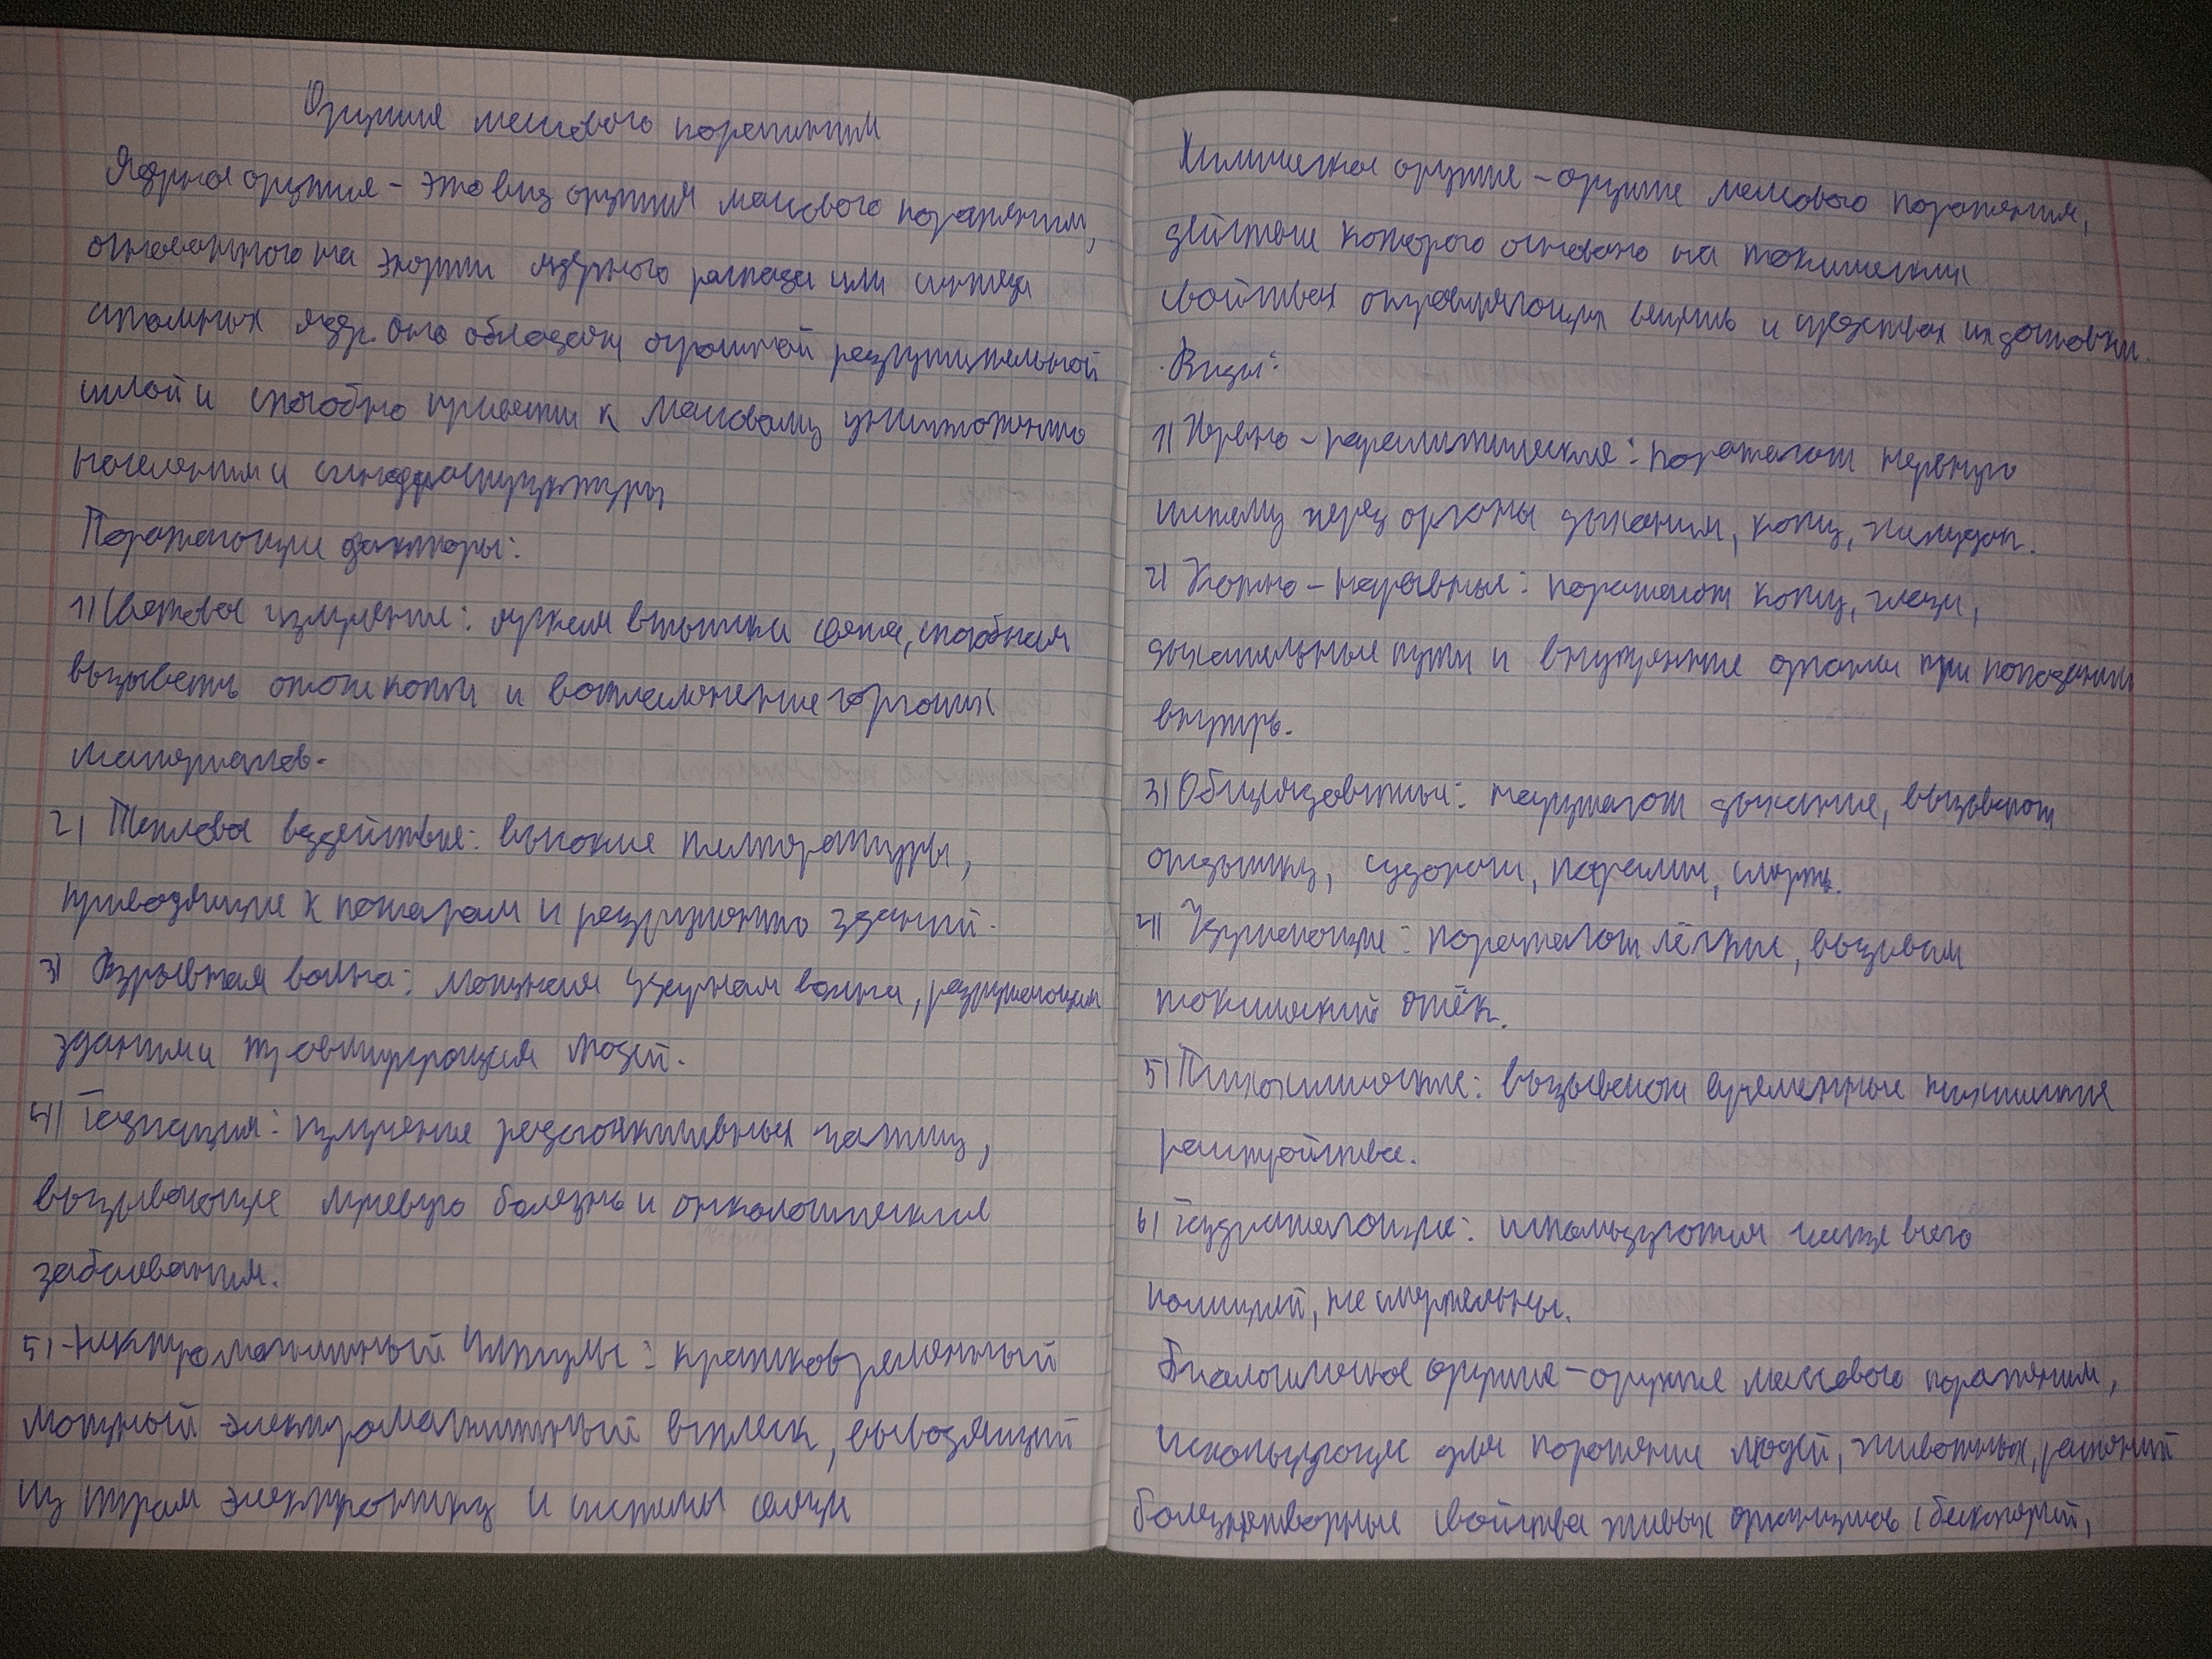 Оружия массового поражения
Ядерное оружия - это вид оружия массового поражения,
основанного на энергии ядерного распада или синтеза
атомных ядр. Оно обладает огромной разрушительной
силой и способно привести к массовому уничтожению
населения и инфраструктуры
Поражающие факторы:
1) Световое излучение: яркая вспышка света, способная
вызывать ожоги кожи и воспламенение горючих
материалов.
2) Тепловое воздействие: высокие температуры,
приводящие к пожарам и разрушению зданий.
3) Взрывная волна: мощная ударная волна, разрушающая
здания и травмирующая людей.
4) Радиация: излучение радиоактивных частиц,
вызывающие лучевую болезнь и онкологические
заболевания.
5) Электромагнитный импульс: кратковременный
мощный электромагнитный всплеск, выводящий
из строя электронику и системы связи
Химическое оружие - оружие массового поражения,
действие которого основано на токсических
свойствах отравляющих веществ и средствах их доставки.
Виды:
1) Нервно-паралитические: поражают нервную
систему через органы дыхания, кожу, желудок.
2) Кожно-нарывные: поражают кожу, глаза,
дыхательные пути и внутренние органы при попадании
внутрь.
3) Общеядовитые: нарушают дыхание, вызывают
отдышку, судороги, паралич, смерть.
4) Удушающие: поражают лёгкие, вызывая
токсический отёк.
5) Психохимические: вызывают временные психические
расстройства.
6) Раздражающие: используются чаще всего
полицией, не смертельны.
Биологическое оружие - оружие массового поражения,
использующее для поражение людей, животных, растений
болезнетворные свойства живых организмов (бактерий,